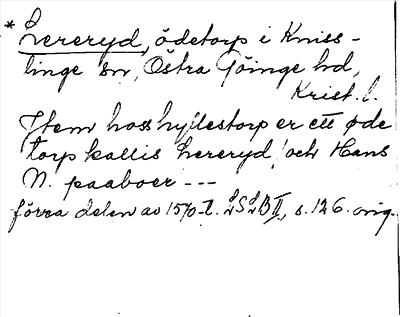 * Lereryd, ödetorp i Kniss-
linge sn, Östra Göinge hd,
Krist. l.
Jtem hoss hyllestorp er ett øde
torp kallis Lereryd och Hans
N. paaboer ---
förra delen av 1570-t. LSLB II, s. 126. orig.